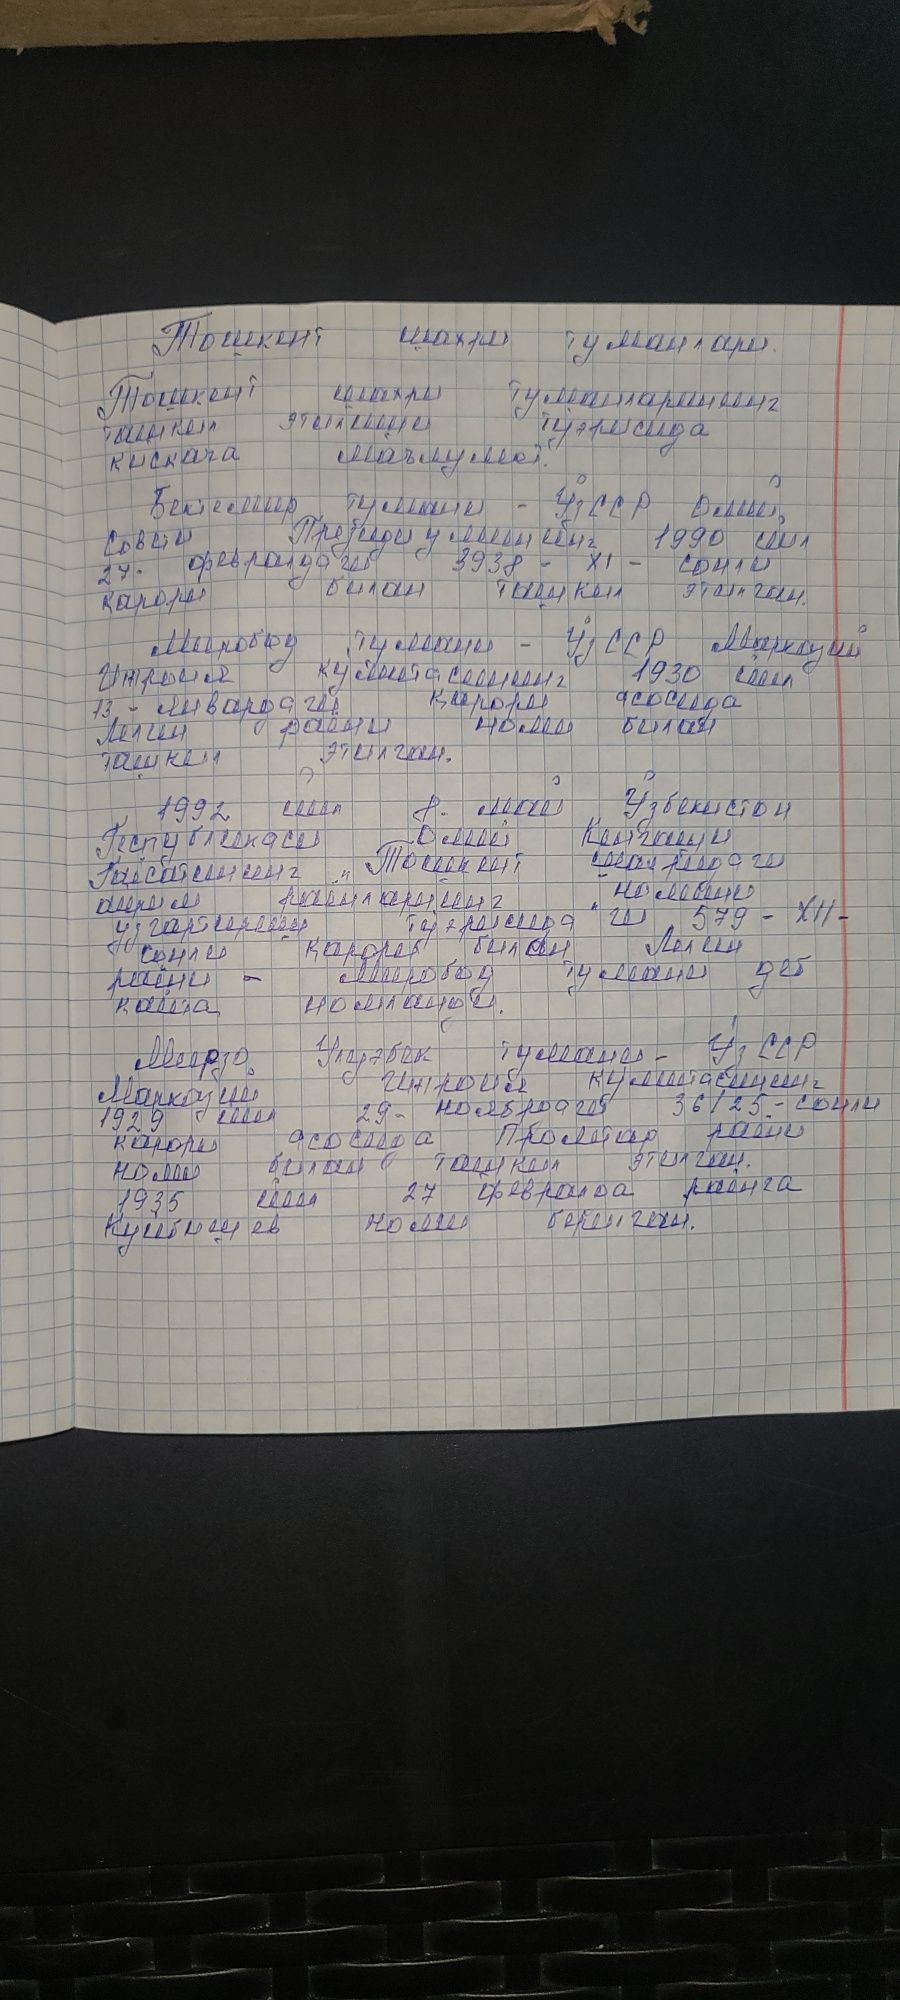 Тошкент шахри туманлари.
Тошкент шахри туманларининг
ташкил этилиши тўғрисида
кискача маълумот.
Бектемир тумани - ЎзССР Олий
Совети Президиумининг 1990 йил
27- февралдаги 3938 - XI - сонли
карори билан ташкил этилган.
Миробод тумани - ЎзССР Марказий
Ижроия кумитасининг 1930 йил
13 - январдаги карори асосида
Ленин райни номи билан
ташкил этилган.
1992 йил 8- май Ўзбекистон
Республикаси Олий Кенгаши
Раисатининг „Тошкент шахридаги
айрим районларининг номини
узгартириш тўғрисида"ги 579 - XII-
сонли карори билан Ленин
райни - Миробод тумани деб
кайта номланди.
Мирзо Улуғбек тумани - ЎзССР
Марказий Ижроия кумитасининг
1929 йил 29- ноябрдаги 36/25-сонли
карори асосида Пролетар райни
номи билан ташкил этилган.
1935 йил 27 февралда райнга
Куйбишев номи берилган.